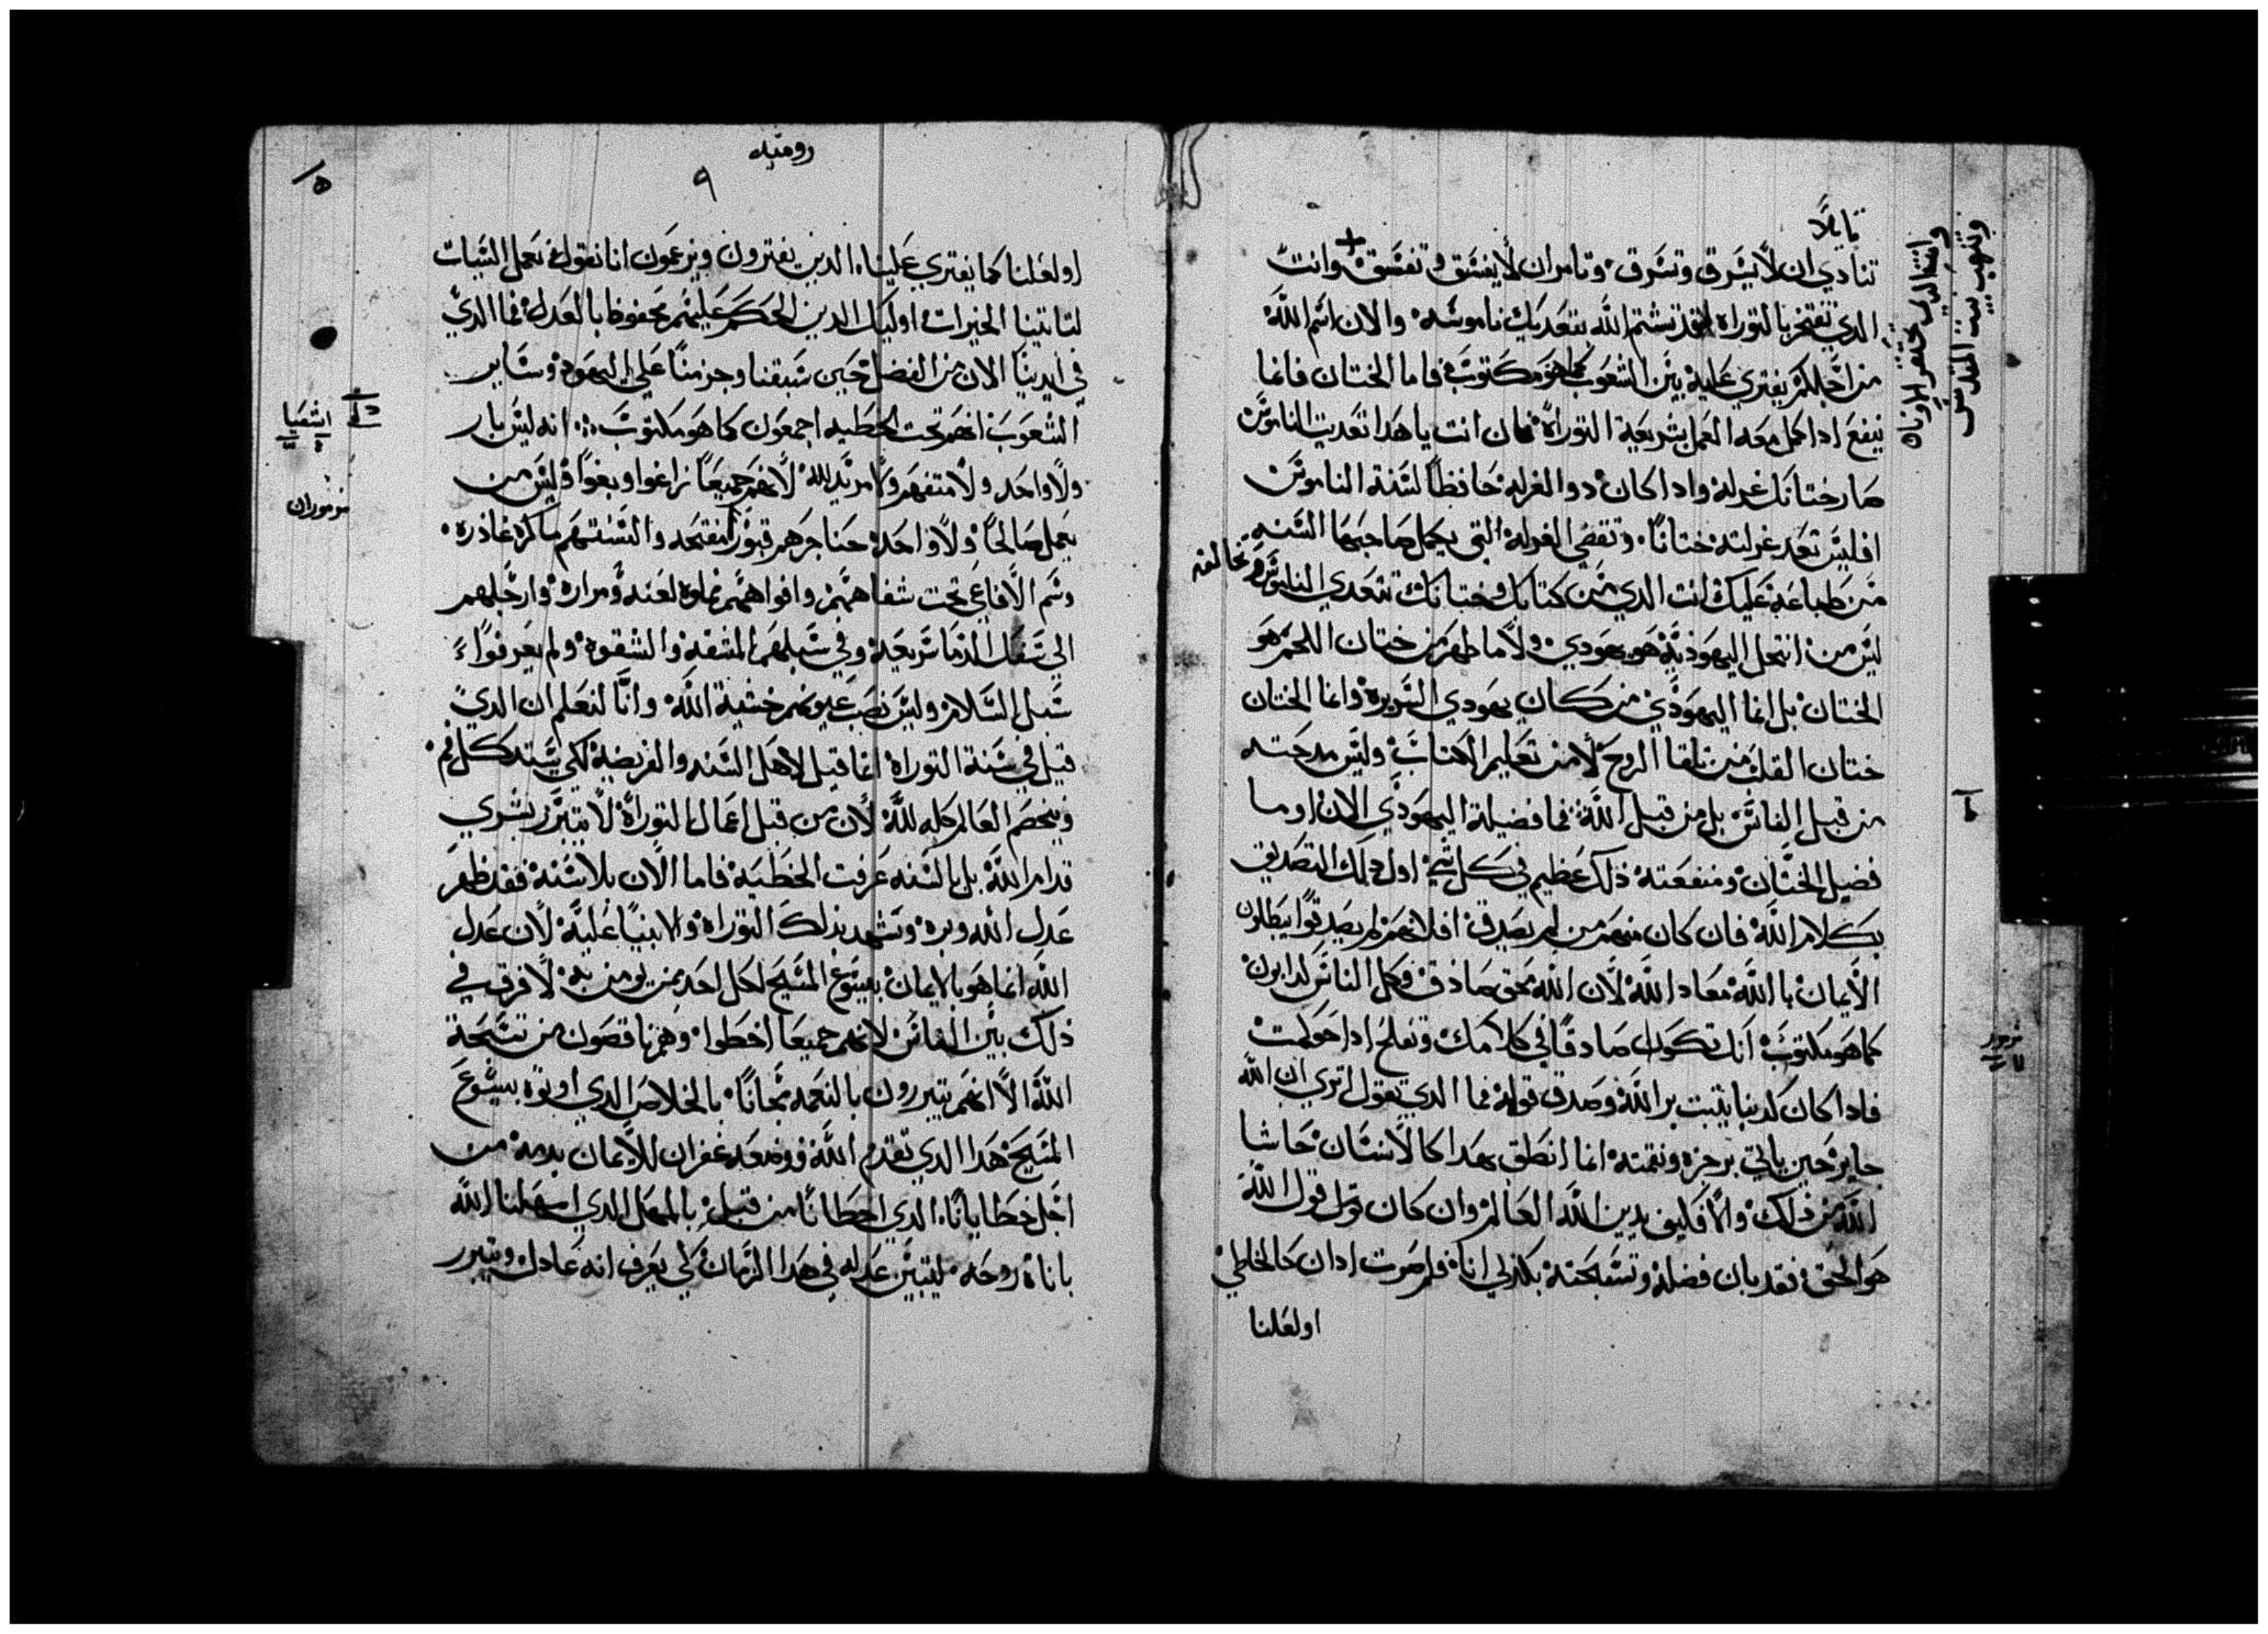 قايلاً
تنادي ان لا يسرق وتسرق وتامر ان لا يفسق وتفسق وانت
وانت الدي تحتقر الاوثان
وتنهب بيت المقدس
الدي تفتخر بالتوراه فقد تشتم الله بتعديك ناموسه والان اسم الله
من اجلكم يفتري عليه بين الشعوب كما هو مكتوب فاما الختان فانما
ينفع ادا كمل معه العمل بشريعة التوراة فان انت يا هدا تعديت الناموس
صار ختانك غرله وادا كان دو الغرله حافظا لسنة الناموس
افليس تعد غرلته ختانا وتقضي الغرله التي يكمل صاحبها السنه
من طباعه عليك انت الدي من كتابك وختانك تتعدي الناموس وتخالفه
ليس من انتحل اليهوديه هو يهودي ولا ما ظهر من ختان اللحم هو
الختان بل انما اليهودي من كان يهودي السريره وانما الختان
ختان القلب من تلقا الروح لا من تعليم الكتاب وليس مدحته
من قبل الناس بل من قبل الله فما فضيلة اليهودي الان او ما
فضيل الختان ومنفعته ذلك عظيم في كل شي اول ذلك التصديق
بكلام الله فان كان منهم من لم يصدق افلانهم لم يصدقوا يبطلون
الايمان بالله معاد الله لان الله محق صادق وكل الناس كدابون
كما هو مكتوب انك تكون صادقا في كلامك وتفلح ادا حوكمت
مزمور
فادا كان كدبنا يثبت بر الله وصدق قوله فما الدي نقول اتري ان الله
جاير حين ياتي برجزه ونقمته انما انطق بهدا كالانسان حاشا
الله من ذلك والا فكيف يدين الله العالم وان كان قول الله
هو الحق فقد بان فضله وتسبحته بكدبي انا فلم صرت ادان كالخاطي
اولعلنا
روميه
٩
٥
اولعلنا كما يفتري علينا الدين يفترون ويزعمون انا نقول نعمل السيات
لتاتينا الخيرات اوليك الدين الحكم عليهم محفوظ بالعدل فما الدي
في ايدينا الان من الفضل حين سبقنا وجزمنا علي اليهود وساير
الشعوب انهم تحت الخطيه اجمعون كما هو مكتوب انه ليس بار
اشعيا
ولا واحد ولا متفهم ولا مريد لله لانهم جميعا زاغوا وبغوا وليس من
مزموران
يعمل صالحا ولا واحد حناجرهم قبور مفتحه والسنتهم ماكره غادره
وسم الافاعي تحت شفاههم وافواههم مملوه لعنه ومراره وارجلهم
الي سفك الدما سريعة وفي سبلهم المشقة والشقوة ولم يعرفوا
سبل السلام وليس نصب عيونهم خشية الله وانا لنعلم ان الدي
قيل في سنة التوراة انما قيل لاهل السنه والفريضه لكي يستد كل فم
ويخصم العالم كله لله لان من قبل اعمال التوراة لا يتبرر بشري
قدام الله بل بالسنه عرفت الخطيه فاما الان بلا سنة فقد ظهر
عدل الله وبره وتشهد بذلك التوراة والانبيا عليه لان عدل
الله انما هو بالايمان بيسوع المسيح لكل احد من يومن به لا فرق في
ذلك بين الناس لانهم جميعا اخطوا وهم ناقصون من تسبحة
الله الا انهم يتبررون بالنعمه مجانا بالخلاص الدي اوتوه بيسوع
المسيح هدا الدي تقدم الله ووضعه غفران للايمان بدمه من
اجل خطايانا الدي اخطانا من قبل بالمهل الدي امهلنا الله
باناة روحه ليتبين عدله في هدا الزمان لكي يعرف انه عادل ويبرر